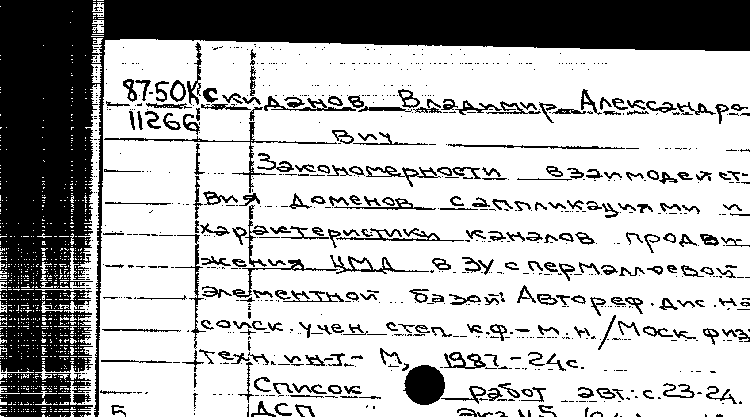 87-50К Скиданов Владимир Александро-
11266 вич
Закономерности взаимодейст-
вия доменов с аппликациями и
характеристики каналов продви-
жения ЦМД в ЗУ с пермаллоевой
элементной базой: Автореф. дис. на
соиск. учен. степ. к.ф.-м.н./Моск. физ.
техн. ин-т.- М, 1987.-24с.
Список работ авт.: с.23-24.
5 ДСП экз. №5